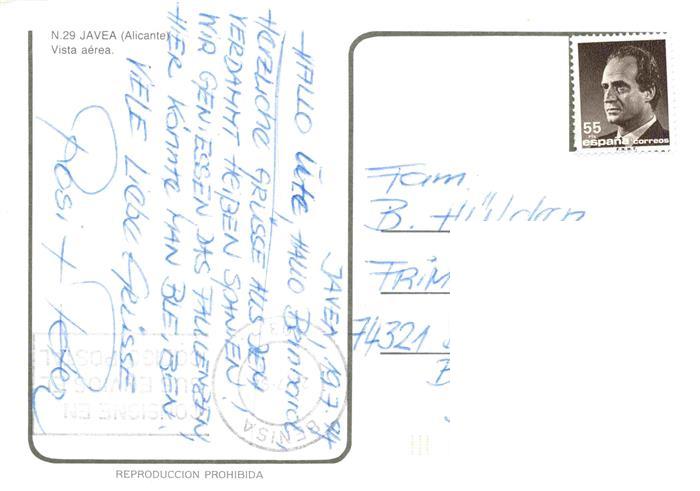 N.29 JAVEA (Alicante)
Vista aérea.
JAVEA 19.7.94
HALLO Ute, HALLO Bernhard,
HERZLICHE GRÜSSE AUS DEM
VERDAMMT HEIßEN SPANIEN!
WIR GENIESSEN DAS FAULENZEN,
HIER KÖNNTE MAN BLEIBEN.
VIELE LIEBE GRÜSSE
Rosi +
55 PTA
españa correos
Fam.
B.
FRIM
74321
B
BENISA
CONSIGNE EN
SUS ENVIOS EL
CODIGO POSTAL
REPRODUCCION PROHIBIDA